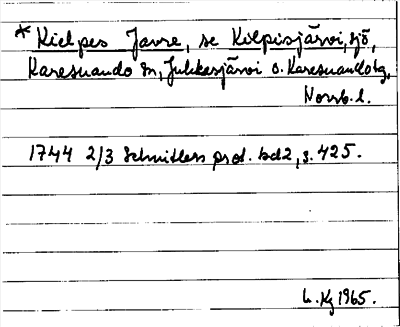 * Kielpes Javre, se Kilpisjärvi, sjö,
Karesuando sn, Jukkasjärvi o. Karesuando tg,
Norrb. l.
1744 2/3 Schnitlers prot. bd 2, s. 425.
1965.